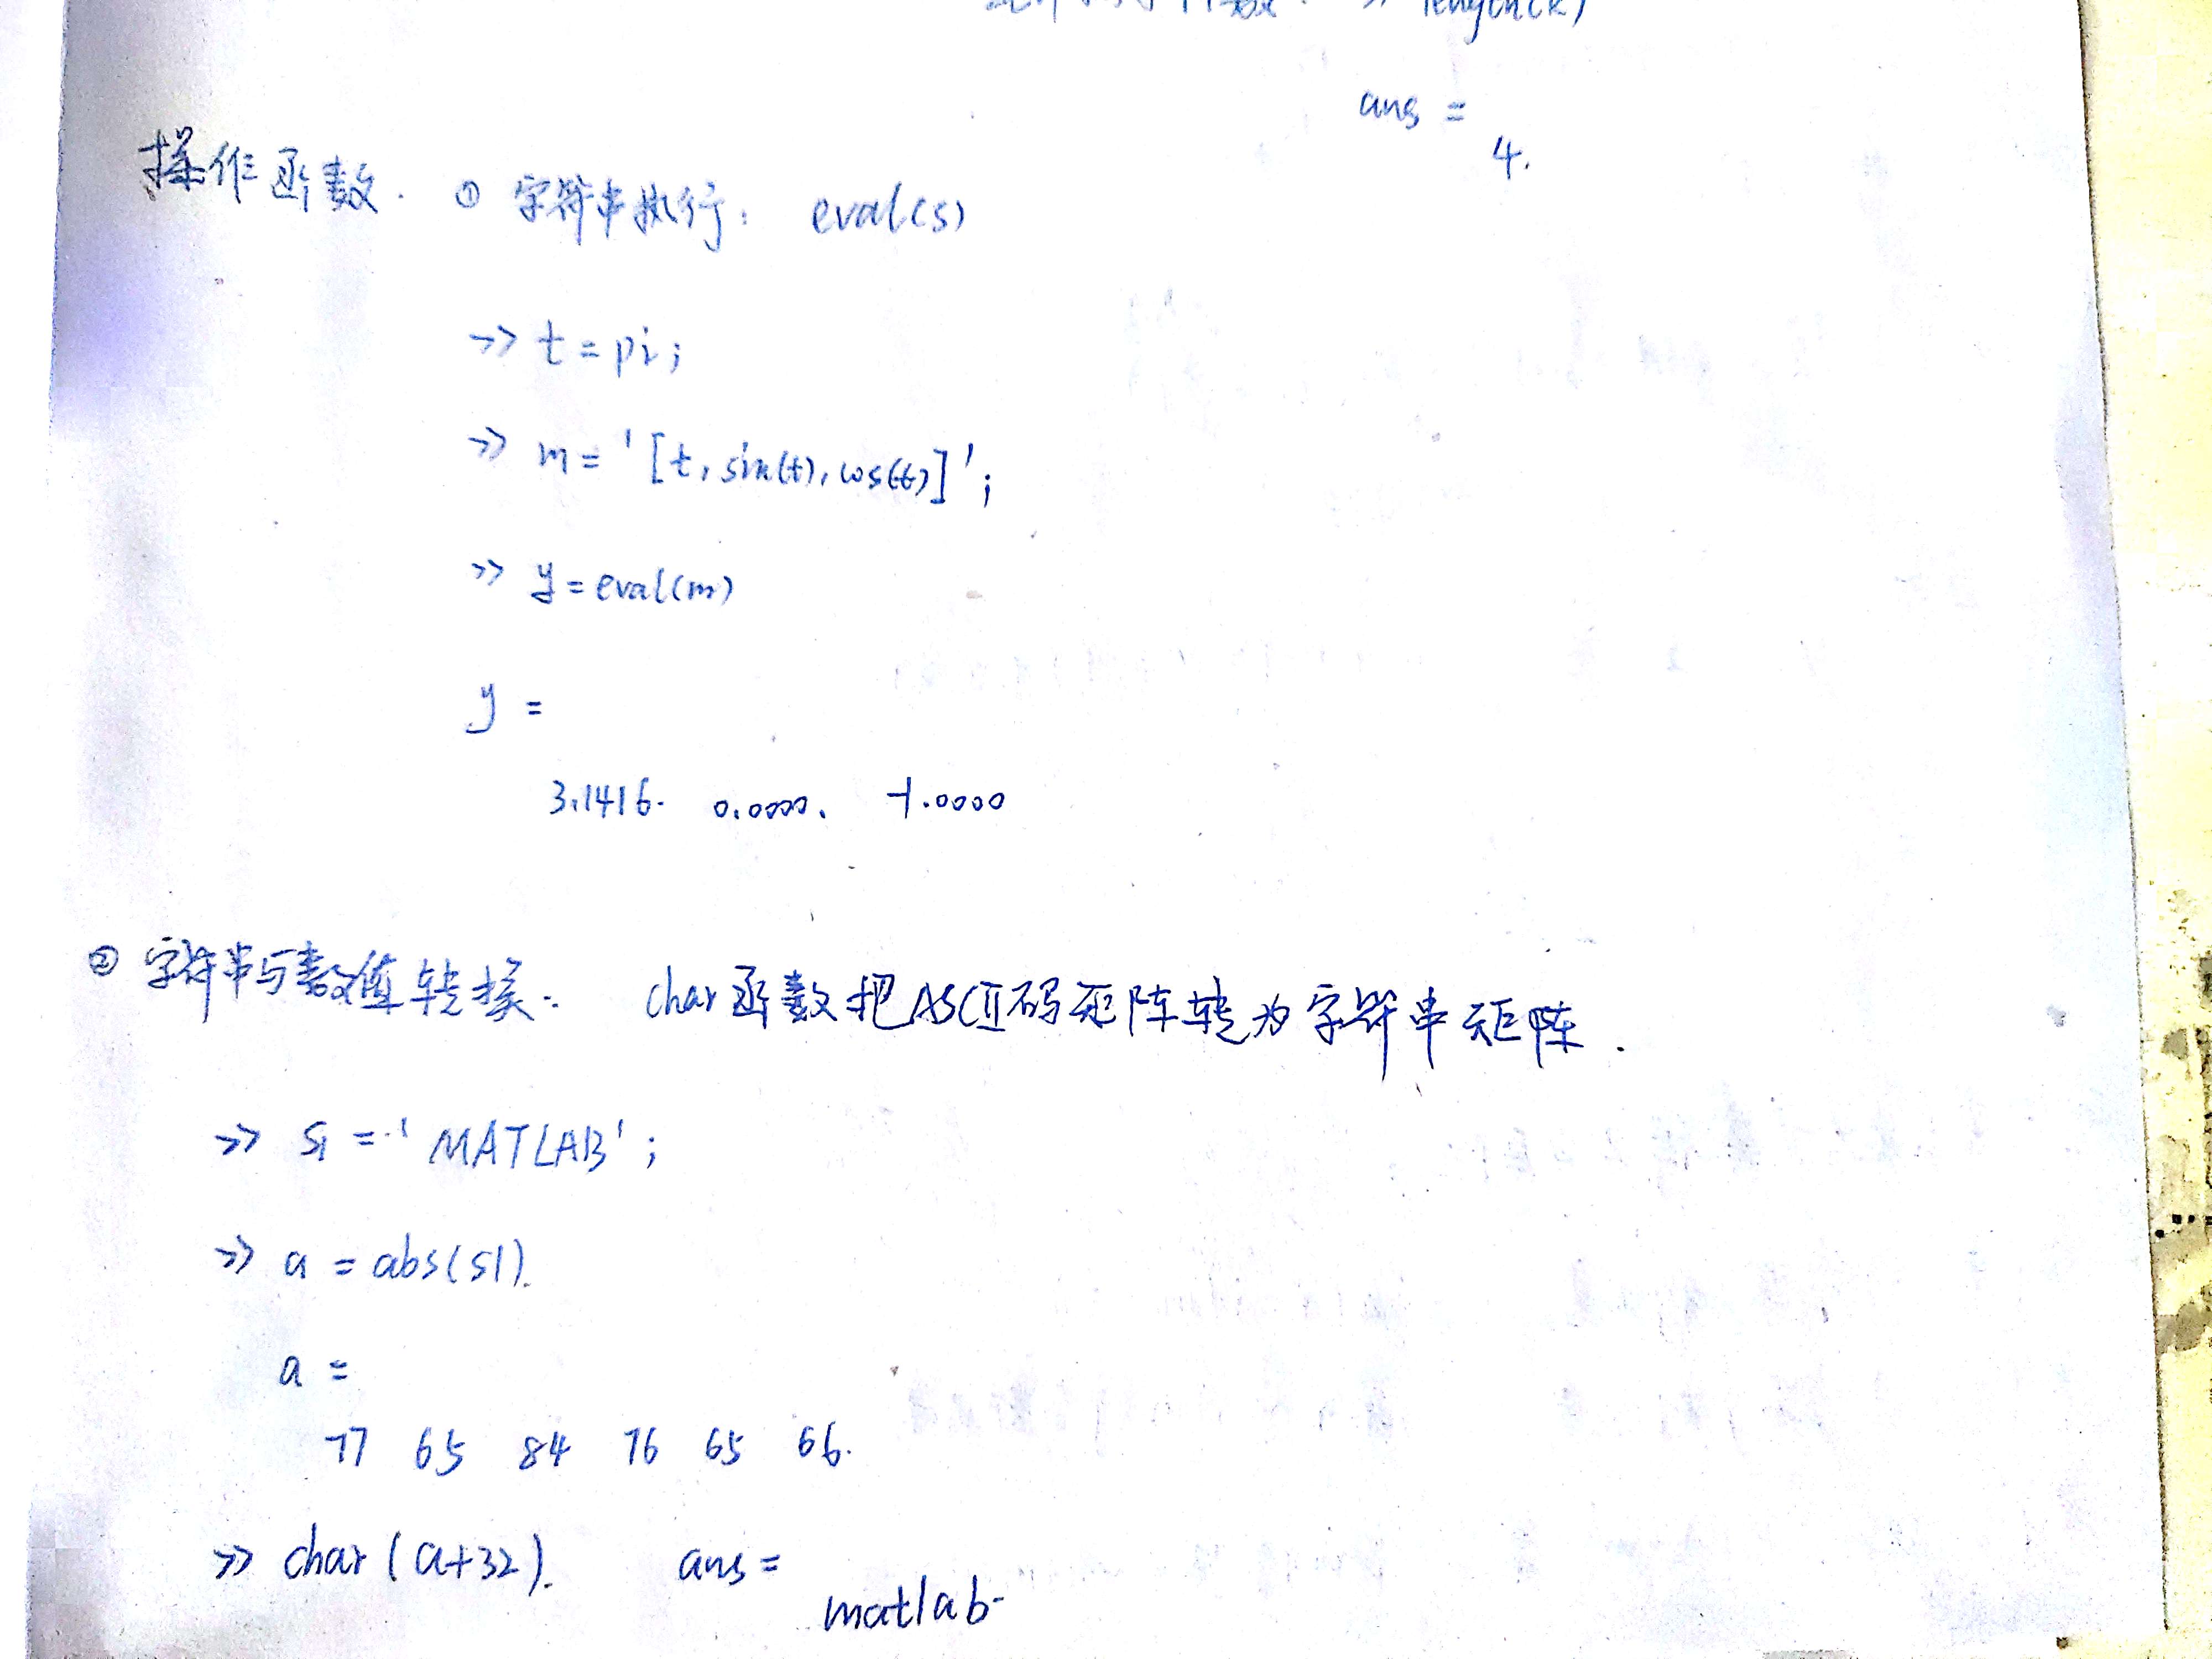 >> length(k)
ans =
4.
操作函数. ① 字符串执行: eval(s)
>> t = pi;
>> m = '[t, sin(t), cos(t)]';
>> y = eval(m)
y =
3.1416. 0.0000. -1.0000
② 字符串与数值转换: char函数把ASCII码矩阵转为字符串矩阵.
>> s1 = 'MATLAB';
>> a = abs(s1).
a =
77 65 84 76 65 66.
>> char(a+32). ans =
matlab